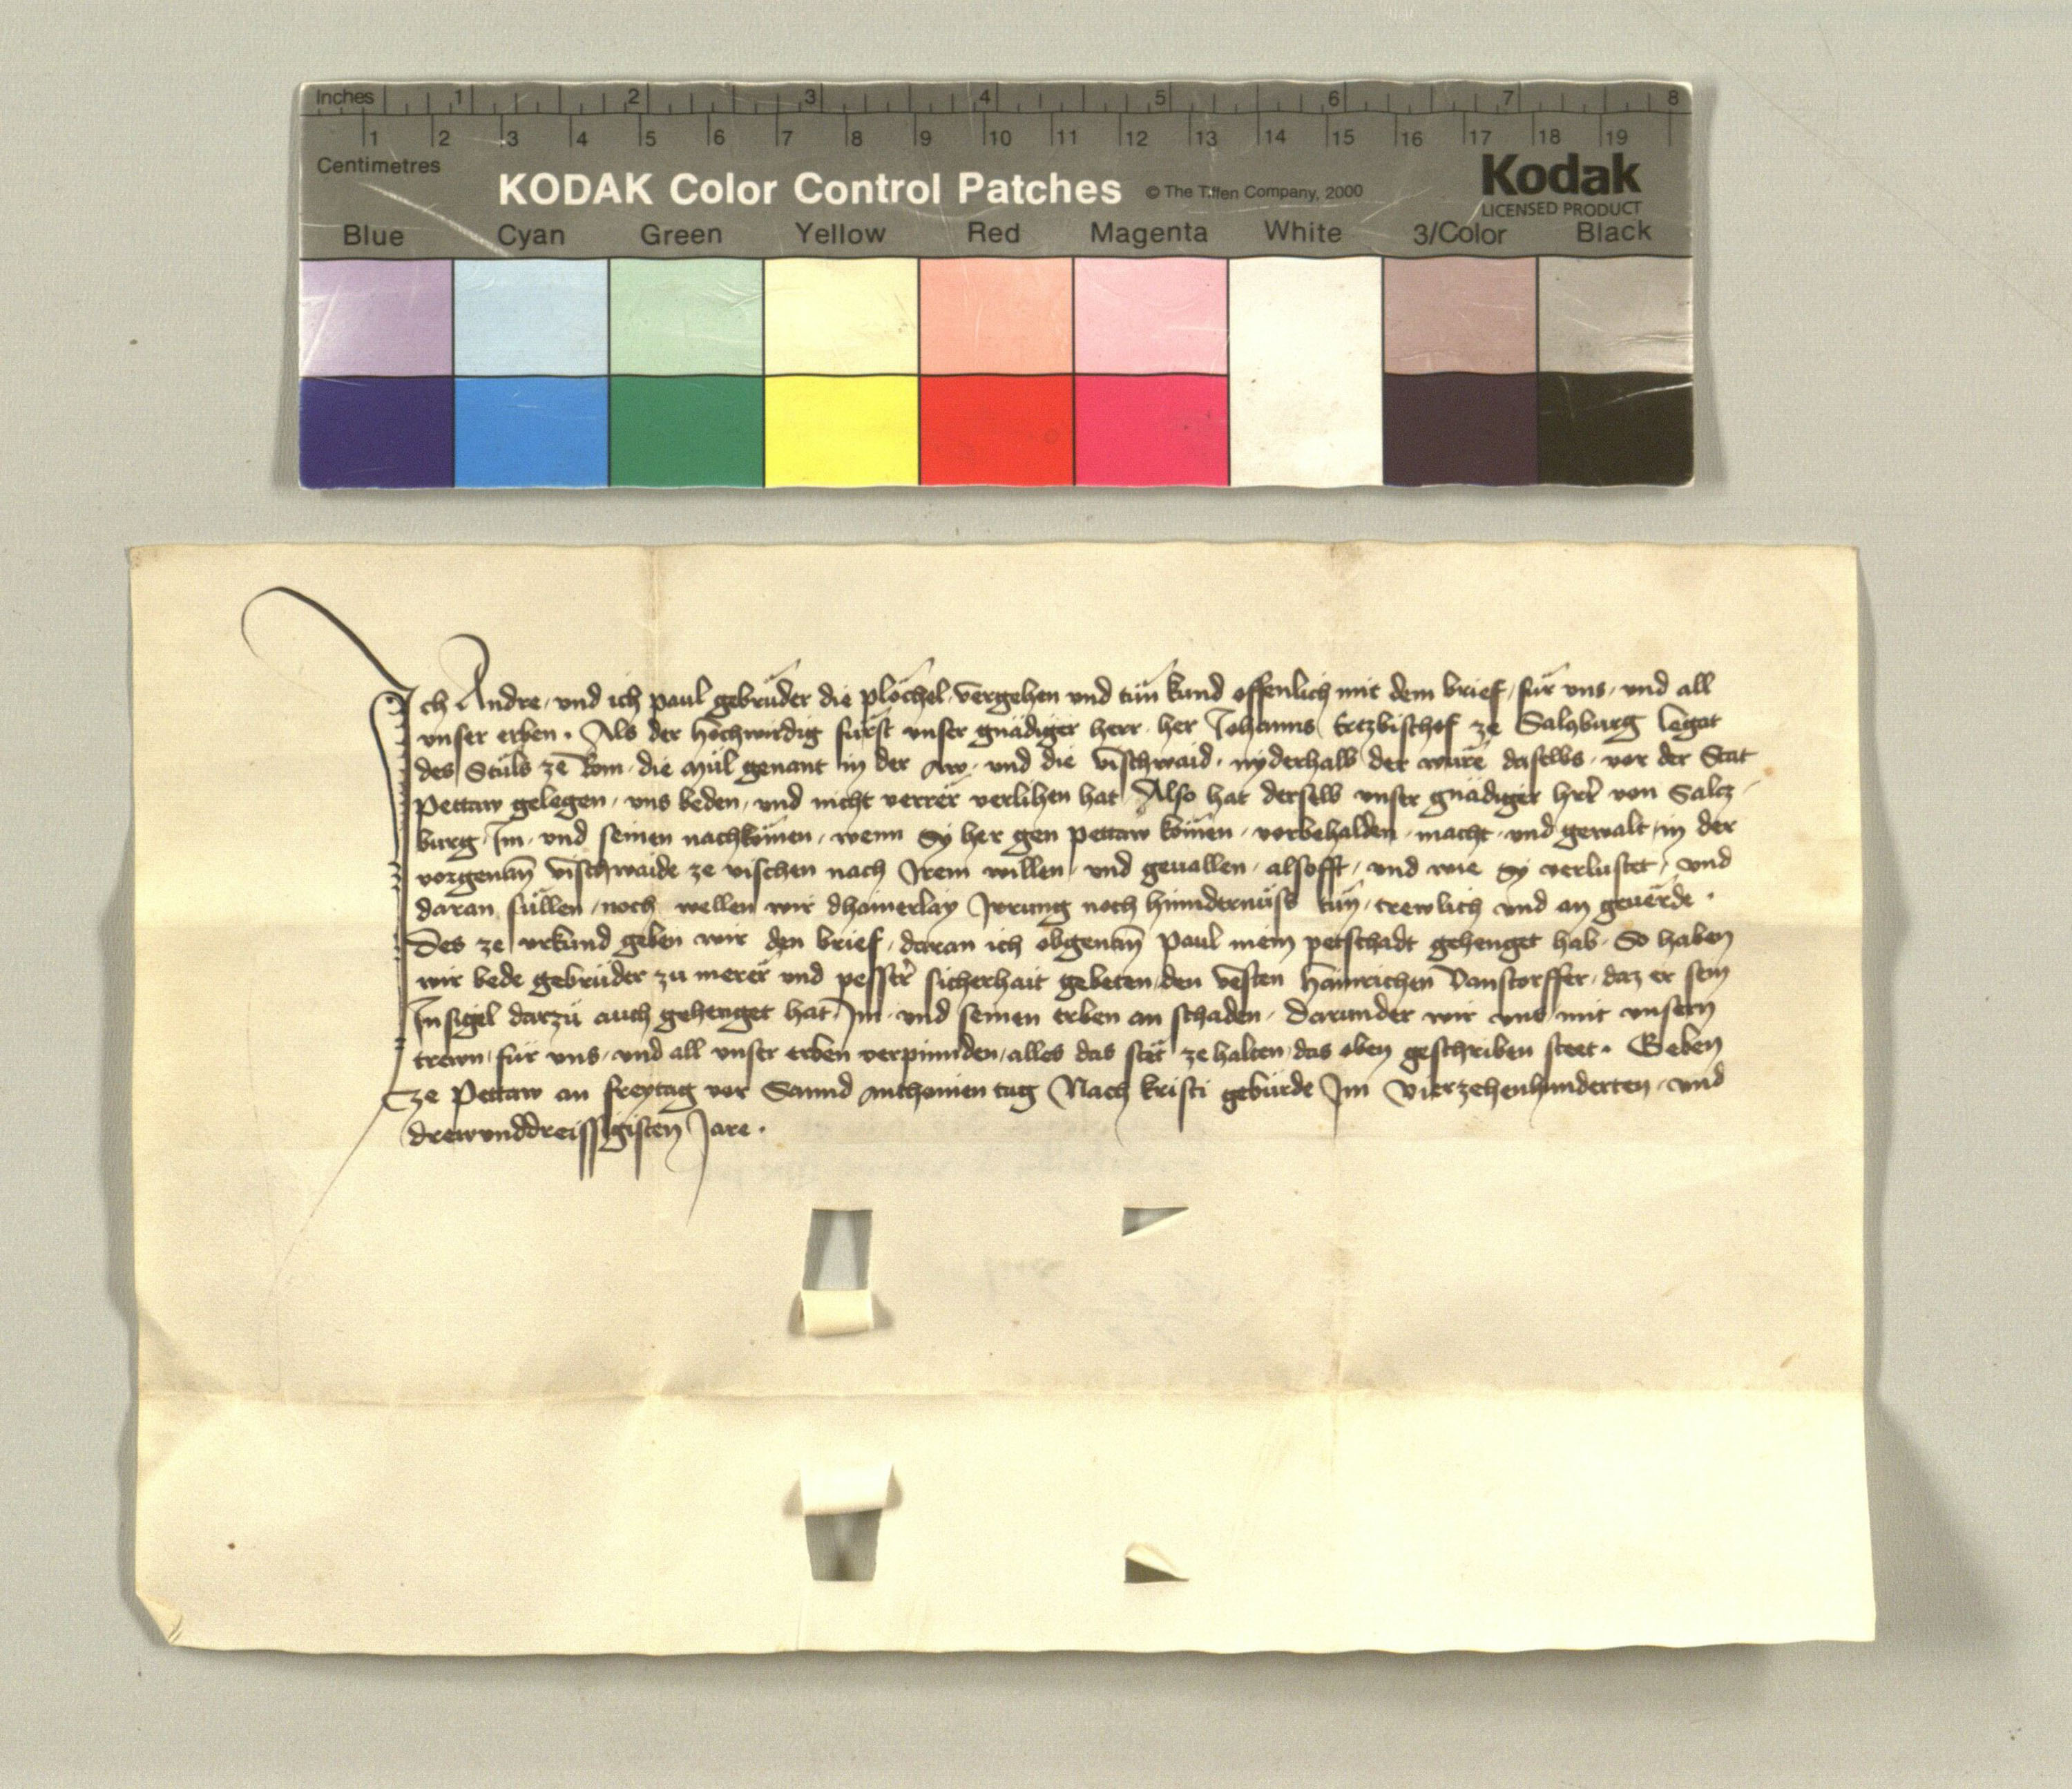 Inches 1 2 3 4 5 6 7 8
1 2 3 4 5 6 7 8 9 10 11 12 13 14 15 16 17 18 19
Centimetres
KODAK Color Control Patches © The Tiffen Company, 2000 Kodak
LICENSED PRODUCT
Blue Cyan Green Yellow Red Magenta White 3/Color Black
Ich Andre, und ich paul gebrüder die plöchel, vergehen und tün kund offenlich mit dem brief, für uns, und all
unser erben. Als der hochwirdig fürst unser gnädiger herr, her Johanns Ertzbischof ze Salzburg Legat
des Stůls ze Rom, die Mül genant in der Aw, und die vischwaid, nyderhalb der würe daselbs, vor der Stat
Pettaw gelegen, uns beden, und nicht verrer verlihen hat, Also hat derselb unser gnädiger hr̄r von Salcz
burg, Im, und seinen nachkomen, wenn Sy her gen pettaw komen, vorbehalden, macht, und gewalt, in der
vorgenan̄ vischwaide ze vischen nach Irem willen, und geuallen, alsofft, und wie Sy verlustet, und
daran süllen, noch wellen wir dhainerlay Irrung noch hinndernüss tün, trewlich und an geuërde.
Des ze urkund geben wir den brief, daran ich obgenan̄ Paul mein petschadt gehenget hab. So haben
wir bede gebrüder zu merer und pesser sicherhait gebeten, den vesten Hainrichen Vanstorffer, daz er sein
Insigel darzü auch gehenget hat, Im, und seinen erben an schaden, darunder wir uns mit unsern
trewn, für uns, und all unser erben verpinnden, alles das stët ze halten, das oben geschriben steet. Geben
ze Pettaw an freytag vor Sannd Anthonien tag Nach kristi gebürde Im Vierzehenhunderten, und
drewunddreissigisten Jare.